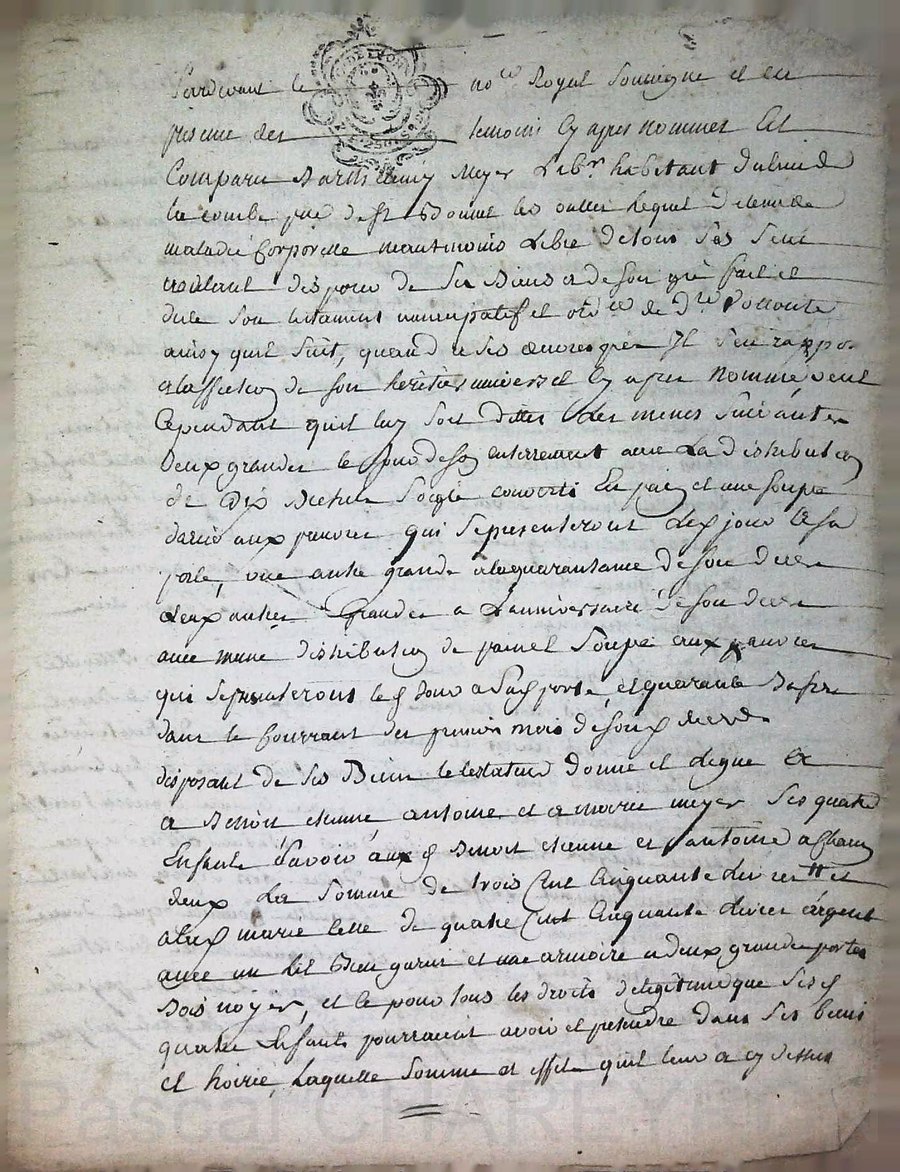 Pardevant le no.re Royal soussigne et en
presence des temoins cy apres nommes Est
Comparu Barthelemy Meyer Lab.r habitant du lieu de
la combe p.sse de st Bonnet les oulles lequel detenu de
maladie corporelle neantmoins Libre de tous ses sens
voulant disposer de ses Biens a de son gré fait et
dicté son testament nuncupatif et ord.re de d.re Vollonté
ainsy quil suit, quand a ses œuvres pies Il sen rappor
a laffection de son heritier universel cy apres nommé, veut
Cependant quil luy soit dittes des messes suivantes
Deux grandes le jour de son enterrement avec La distribution
de dix Bichets soigle converti En pain et une soupe
aux pauvres qui se presenteront led jour a sa
porte, une autre grande a la quarantaine de son deces
deux autres Grandes a L'anniversaire de son deces
avec meme distribution de pain et soupe aux pauvres
qui se presenteront led jour a sad porte, et quarante Basses
dans le Courrant des premiers mois de sond deces
disposant de ses Biens le testateur donne et legue Et
a Benoit etienne antoine et a marie meyer ses quatre
Enfants savoir aux d Benoit etienne et antoine a chacun
deux La somme de trois Cent Cinquante livres et
a lad marie celle de quatre Cent Cinquante Livres d'argent
avec un lit Bien garni et une armoire a deux grandes portes
Bois noyer, et ce pour tous les droits de legitime que ses d
quatre Enfants pourraient avoir et pretendre dans ses biens
et hoirie, Laquelle somme et effets quil leur a cy dessus
G. DE LYON
Pascal CHAREYRON